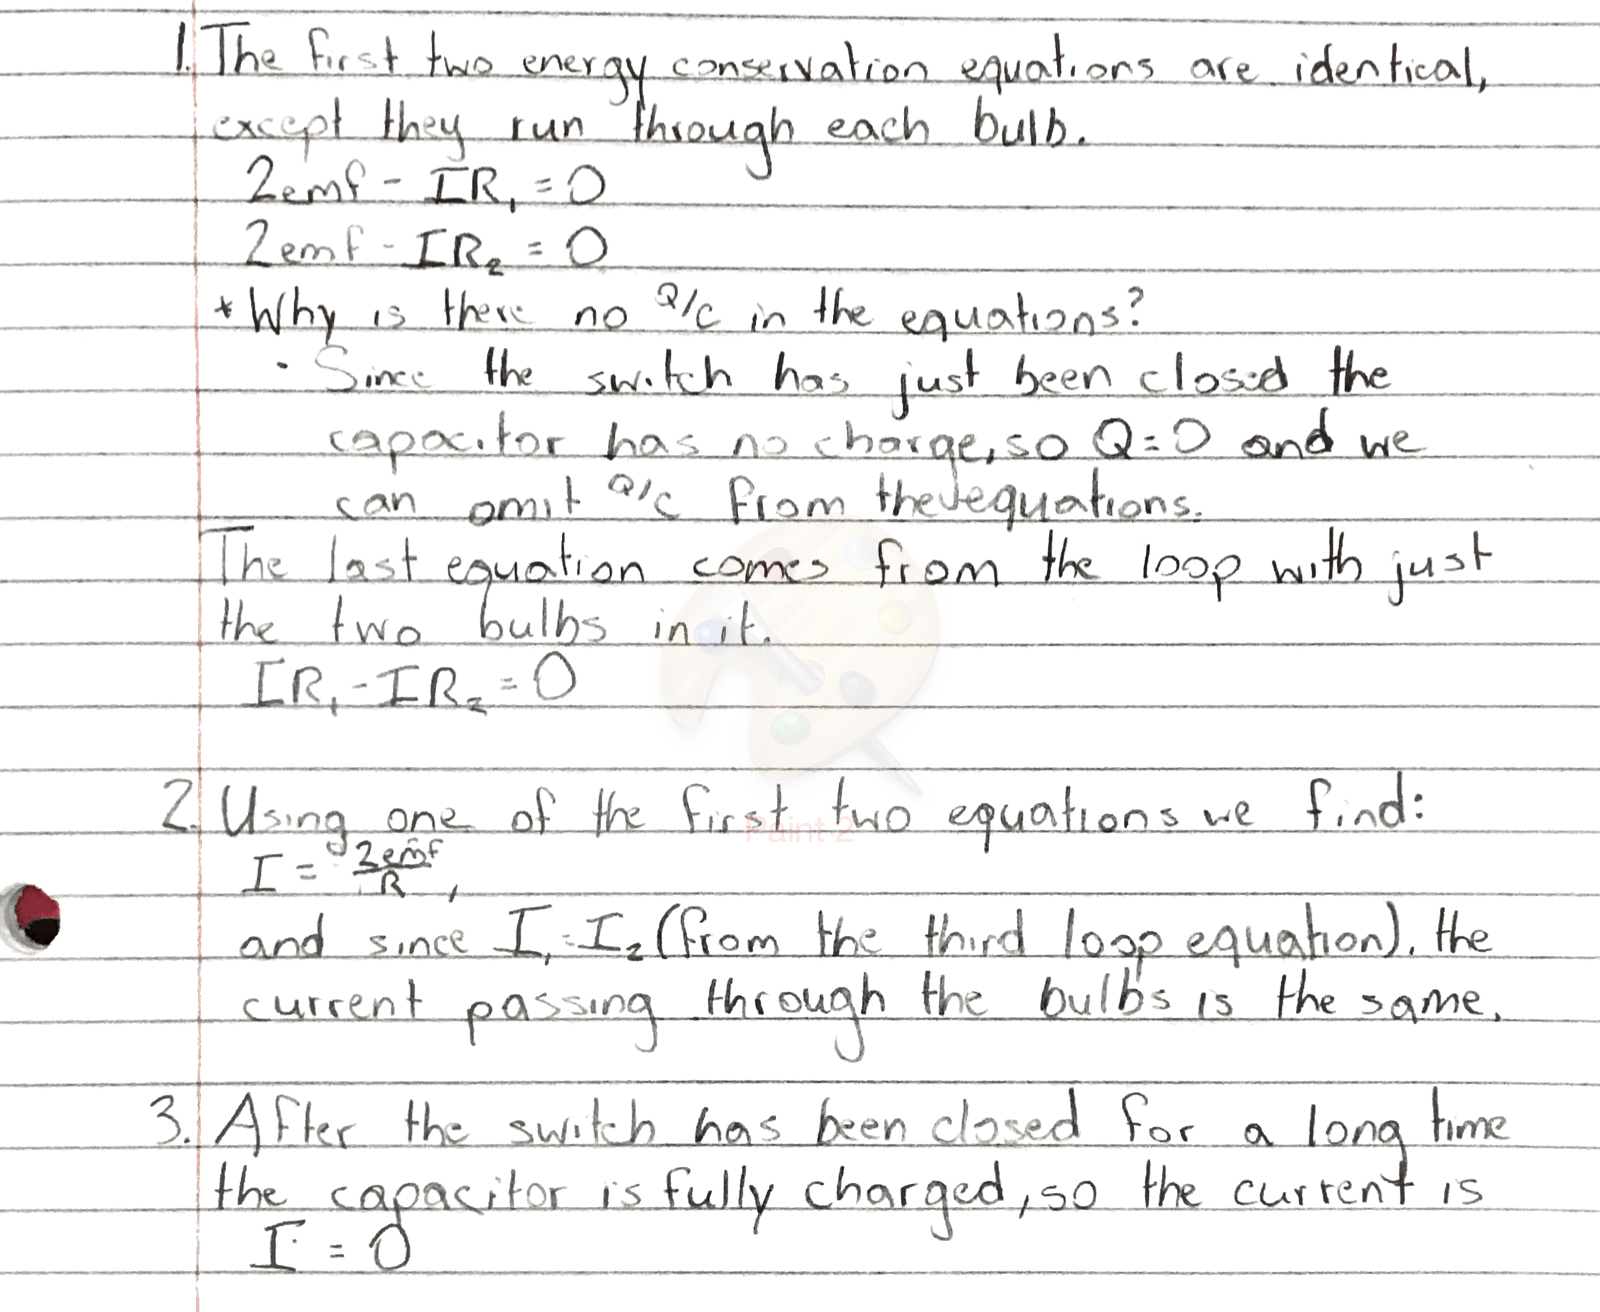 1. The first two energy conservation equations are identical,
except they run through each bulb.
2emf - IR₁ = 0
2emf - IR₂ = 0
* Why is there no Q/C in the equations?
· Since the switch has just been closed the
capacitor has no charge, so Q = 0 and we
can omit Q/C from the equations.
The last equation comes from the loop with just
the two bulbs in it.
IR₁ - IR₂ = 0
2. Using one of the first two equations we find:
Paint 2
I = 2emf/R ,
and since I₁ = I₂ (from the third loop equation), the
current passing through the bulbs is the same.
3. After the switch has been closed for a long time
the capacitor is fully charged, so the current is
I = 0